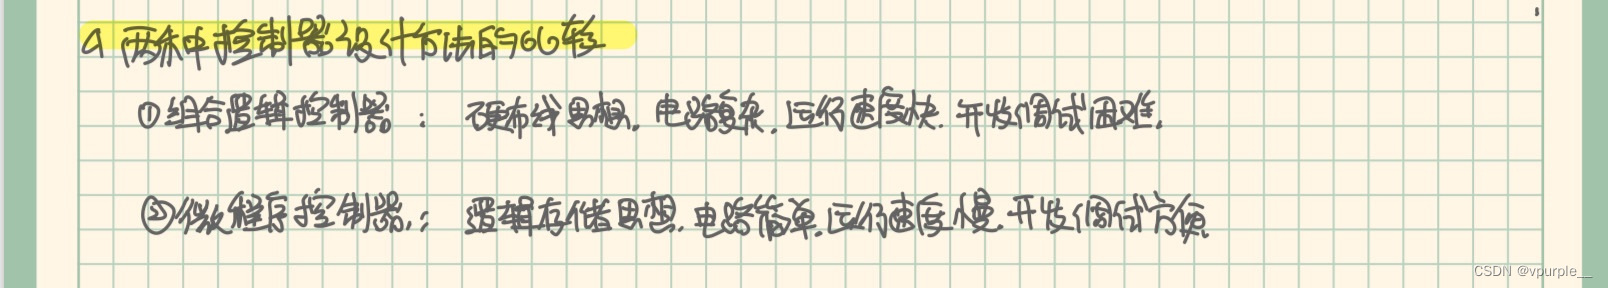 4 两种控制器设计方法的比较
①组合逻辑控制器： 硬布线思想，电路复杂，运行速度快，开发调试困难.
②微程序控制器： 逻辑存储思想，电路简单，运行速度慢，开发调试方便
CSDN @vpurple__